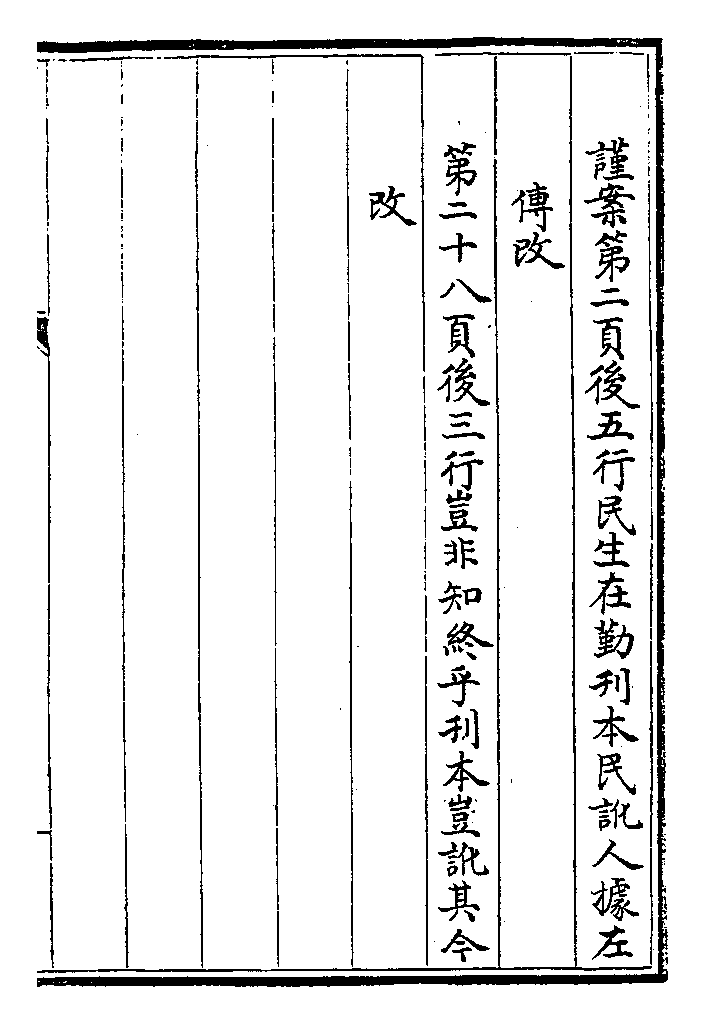 謹案第二頁後五行民生在勤刋本民訛人據左
傳改
第二十八頁後三行豈非知終乎刋本豈訛其今
改